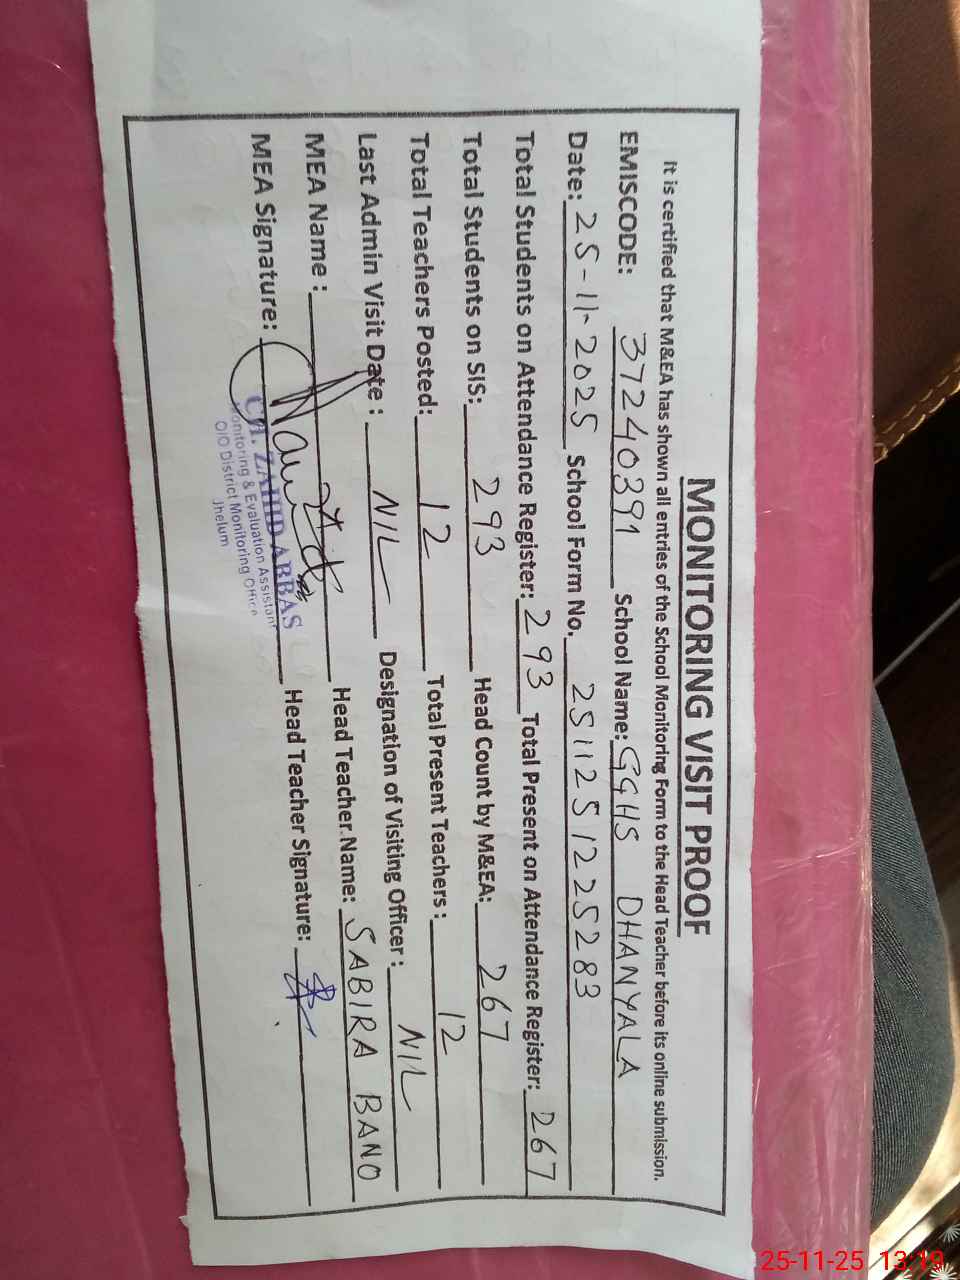 MONITORING VISIT PROOF
It is certified that M&EA has shown all entries of the School Monitoring Form to the Head Teacher before its online submission.
EMISCODE: 37240391 School Name: GGHS DHANYALA
Date: 25-11-2025 School Form No. 2511251225283
Total Students on Attendance Register: 293 Total Present on Attendance Register: 267
Total Students on SIS: 293 Head Count by M&EA: 267
Total Teachers Posted: 12 Total Present Teachers: 12
Last Admin Visit Date: NIL Designation of Visiting Officer: NIL
MEA Name: Head Teacher Name: SABIRA BANO
MEA Signature: Head Teacher Signature:
ZAHID ABBAS
Monitoring & Evaluation Assistant
O/O District Monitoring Office
Jhelum
25-11-25 13:19